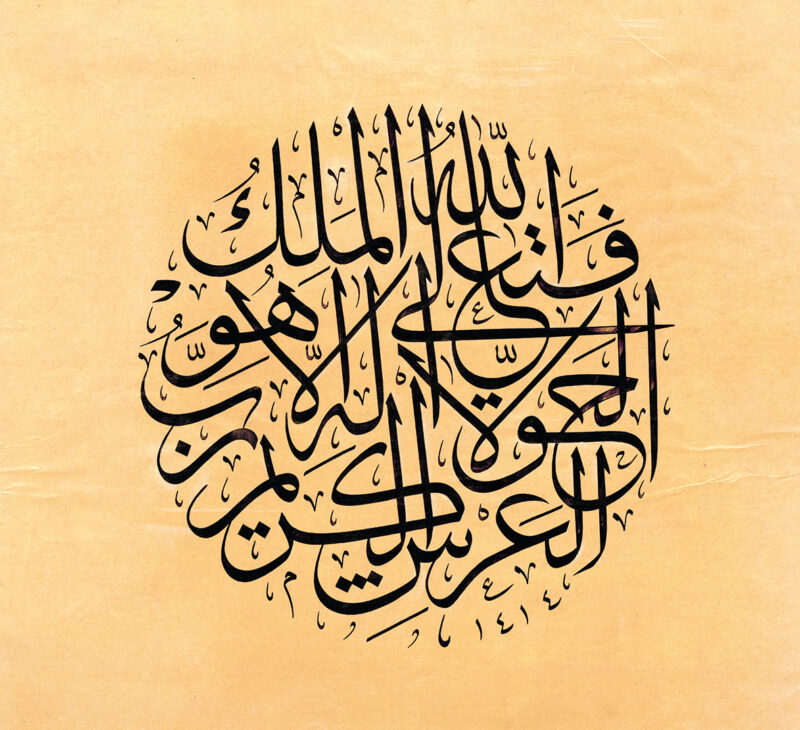 فتعالى الله الملك
الحق لا اله الا هو رب
العرش الكريم
١٤١٤